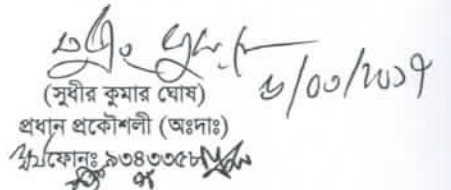 ৮/০৩/২০১৭
(সুধীর কুমার ঘোষ)
প্রধান প্রকৌশলী (অঃদাঃ)
ফোনঃ ৯৩৪৩৩৫৮